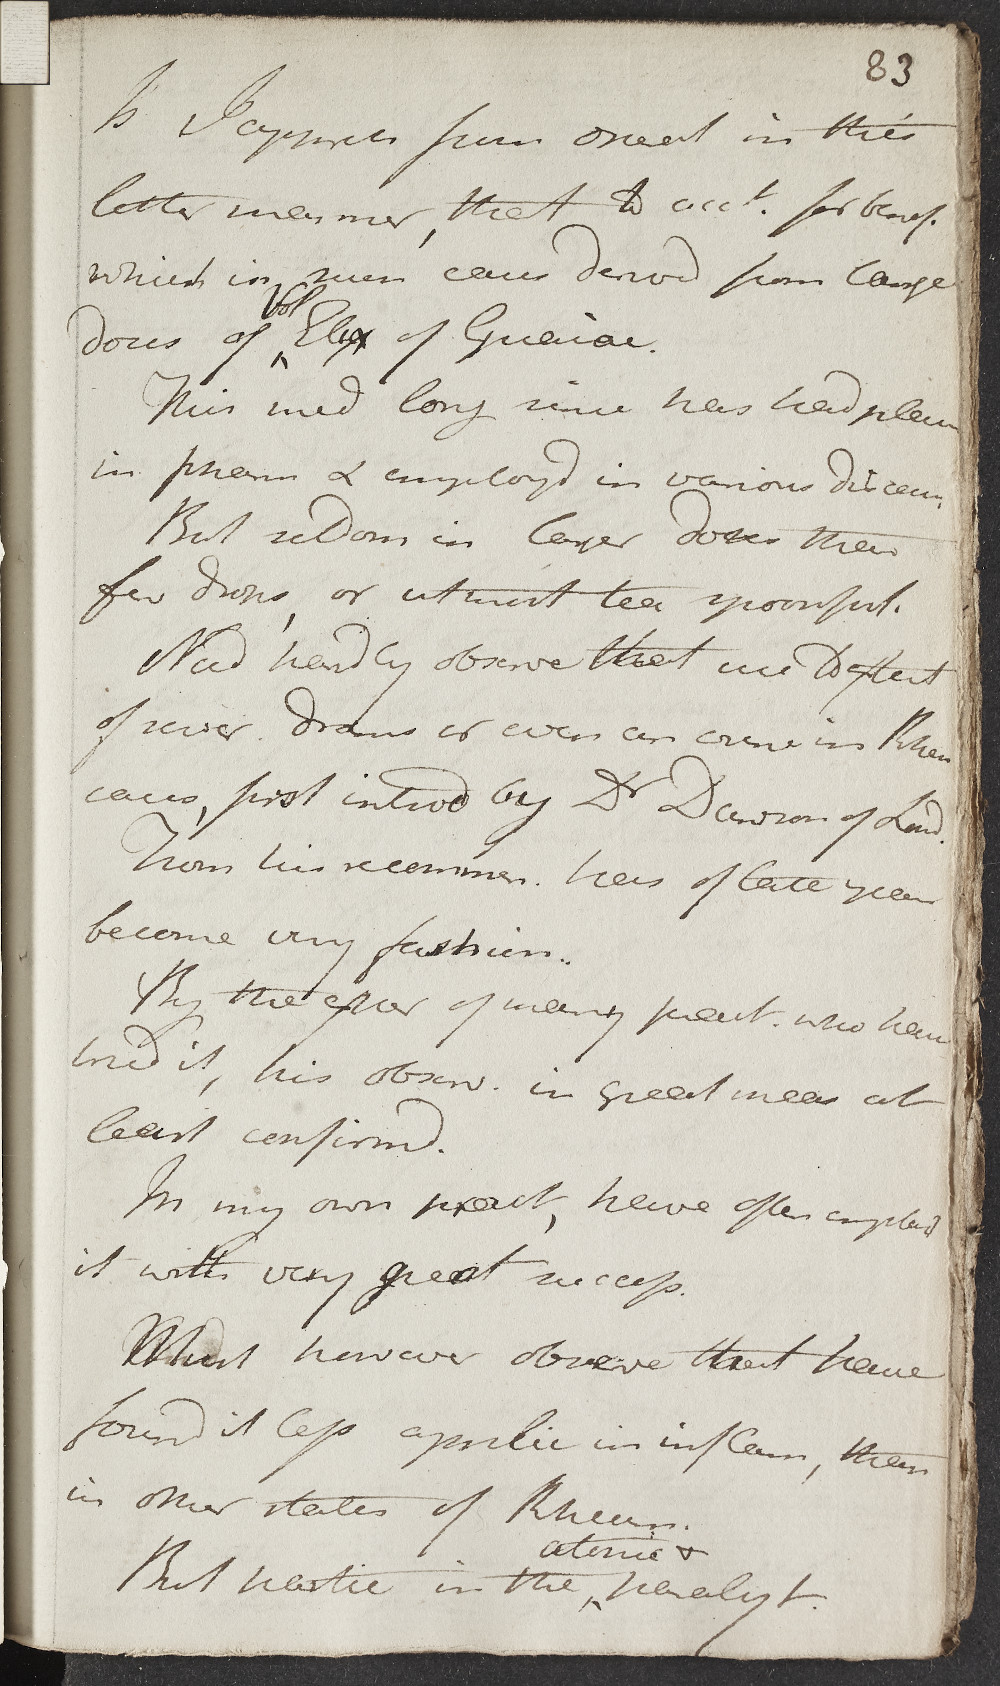 83
Is I apprehen from oneed in this
latter manner, that to acct. for benef.
which in many cases derived from large
doses of Vol Elix of Guaiac.
This med long since has had place
in pharm & employd in various diseases,
But seldom in larger doses than
few drops, or utmost tea spoonful.
Need hardly observe that use to extent
of sever. drams or even an ounce in Rheu
cases, first introd by Dr Dawson of Lond.
From his recommen. has of late years
become very fashion..
By the exper of many pract. who have
tried it, his observ. in great meas at
least confirmd.
In my own pract, have often employd
it with very great success.
Must however observe that have
found it less applic in inflam, than
in other states of Rheum.
atonic &
But partic in the, paralyt.